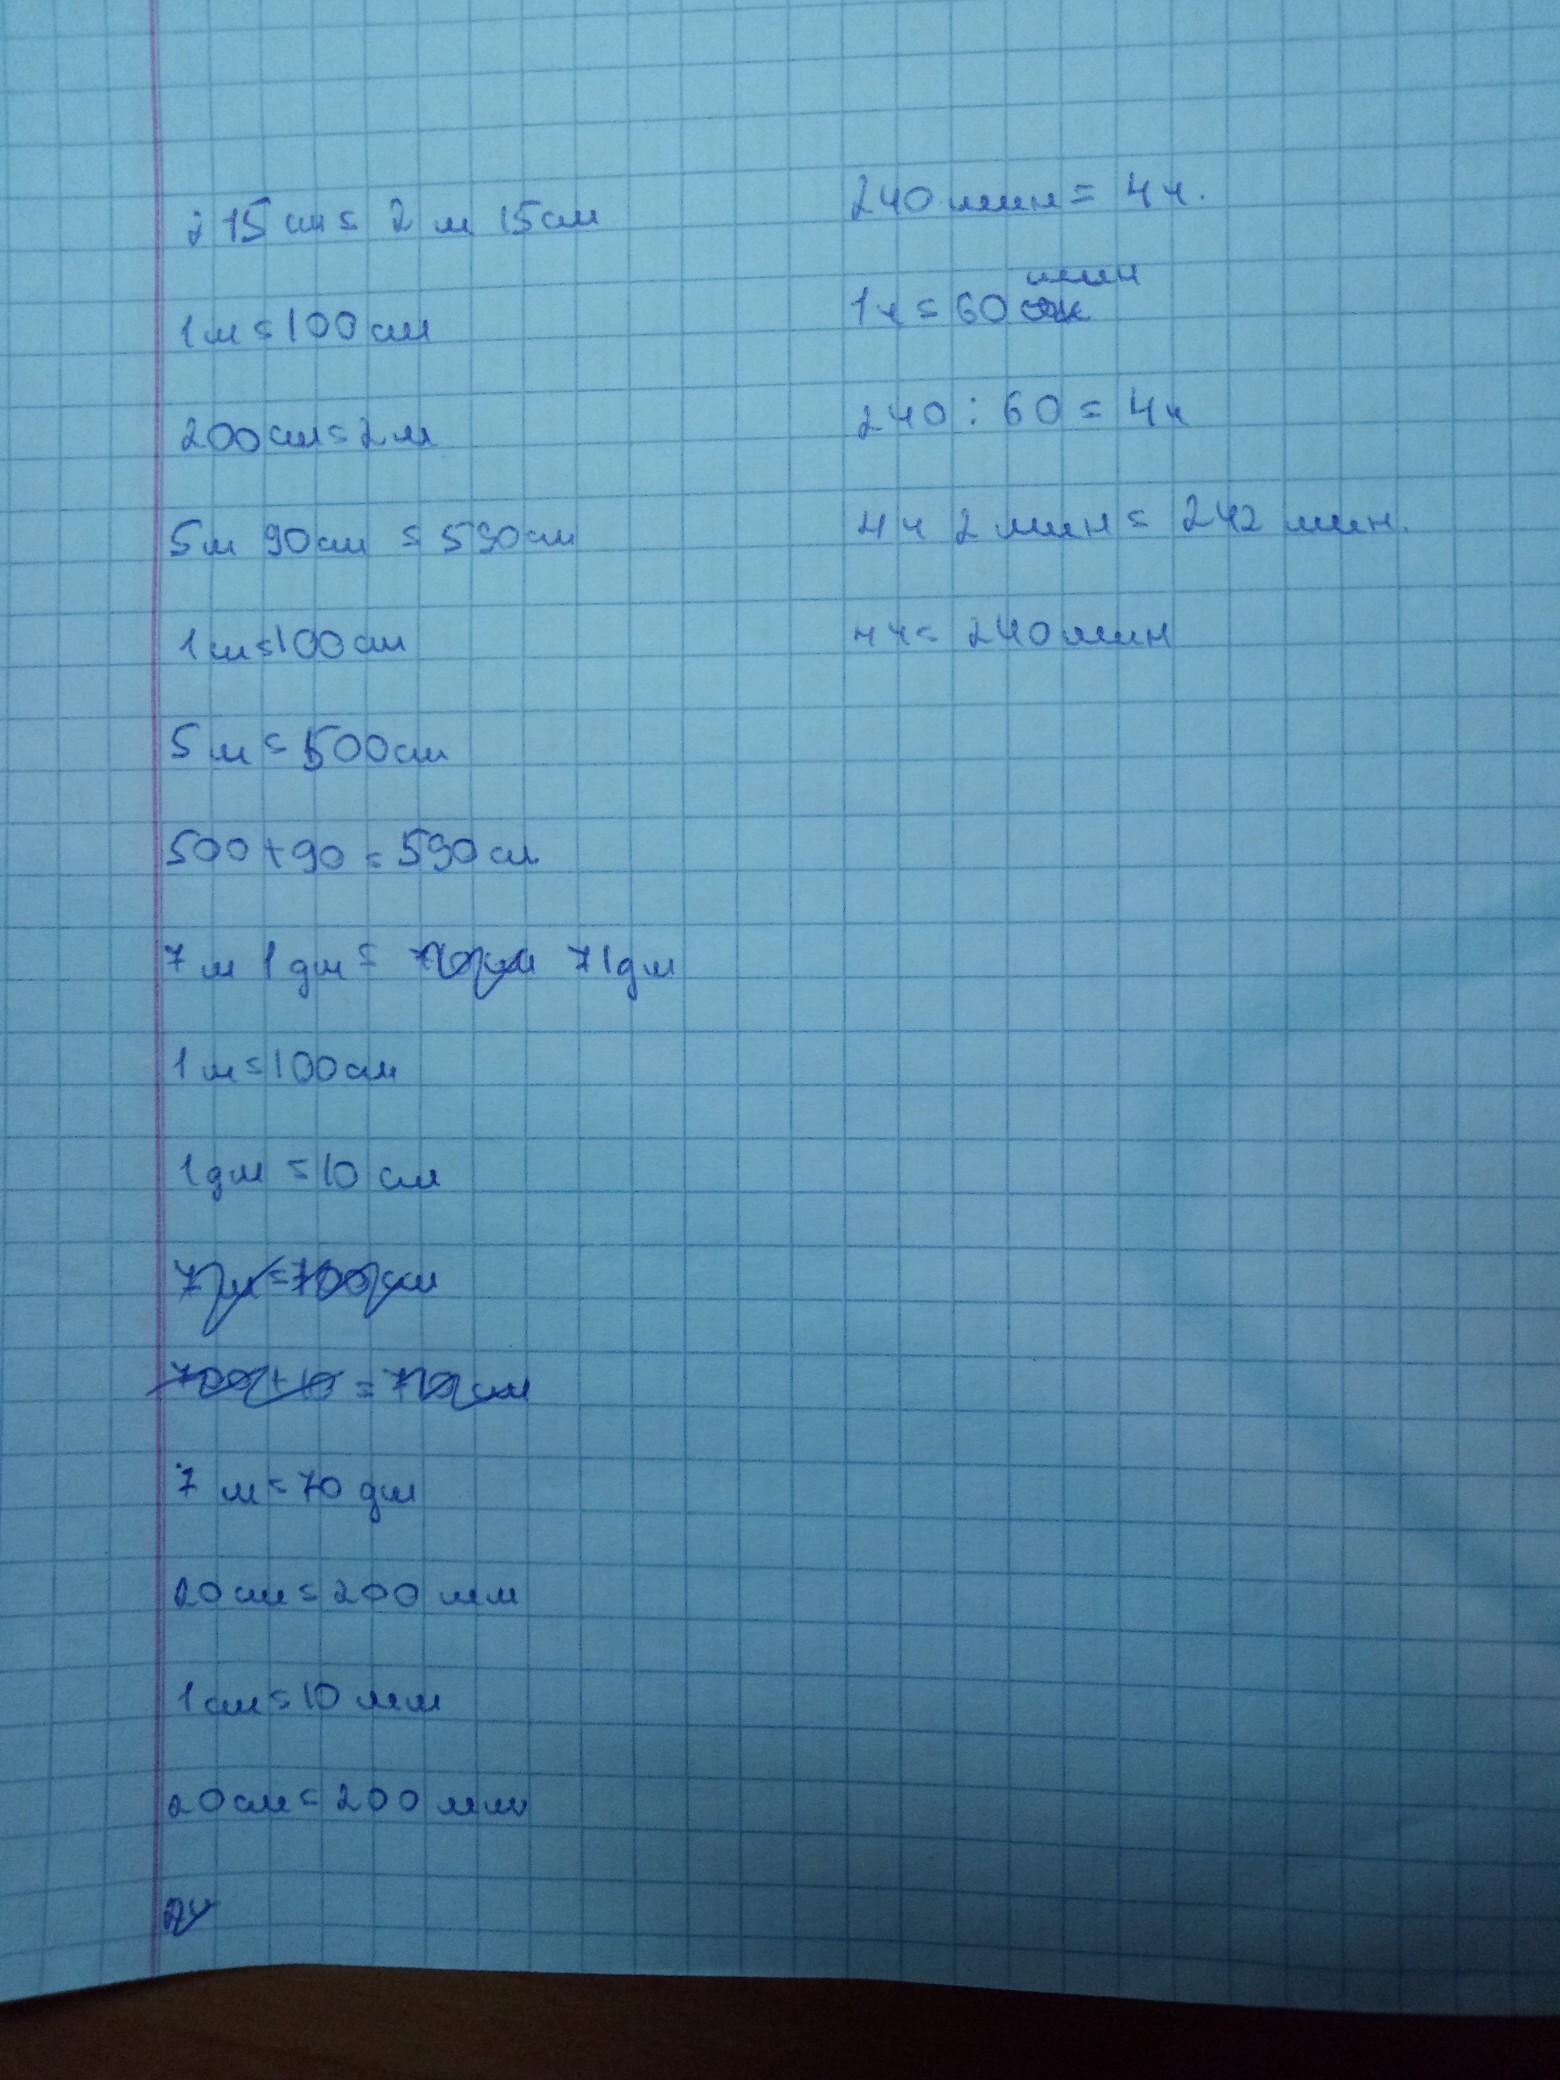 215 см = 2 м 15 см
1 м = 100 см
200 см = 2 м
5 м 90 см = 590 см
1 м = 100 см
5 м = 500 см
500 + 90 = 590 см
7 м 1 дм = 710 см 71 дм
1 м = 100 см
1 дм = 10 см
7 м = 700 см
700 + 10 = 710 см
7 м = 70 дм
20 см = 200 мм
1 см = 10 мм
20 см = 200 мм
240 мин = 4 ч.
1 ч = 60 мин
240 : 60 = 4 ч
4 ч 2 мин = 242 мин.
4 ч = 240 мин